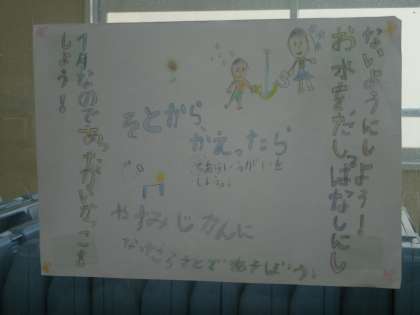 お水をだしっぱなしにし
ないようにしよう!
そとから、
かえったら
てあらいうがいを
しよう。
やすみじかんに
そとであそぼう。
なのであったかいかっこを
しよう!